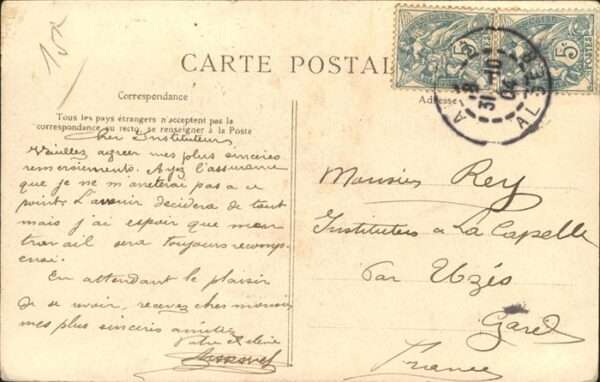 CARTE POSTALE
Correspondance
Tous les pays étrangers n'acceptent pas la
correspondance au recto, se renseigner à la Poste
Adresse
5c
5c
ALGER
31-10
04
Cher Instituteurs
Veuillez agreer mes plus sinceres
remerciements. Ayez l'assurance
que je ne m'arreterai pas a ce
point. L'avenir decidera de tout
mais j'ai espoir que mon
travail sera toujours recomp-
ensé.
En attendant le plaisir
de se revoir, recevez cher monsieur
mes plus sinceres amitiés
Votre eleve
Monsieur Rey
Instituteur a La Capelle
Par Uzés
Gard
France